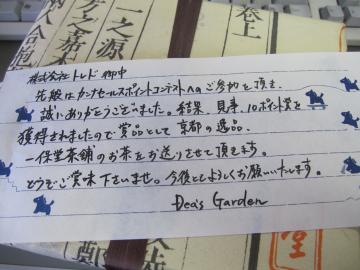 巻上
一之源
株式会社トレド御中
先般はカンナセールスポイントコンテストへのご参加を頂き、
誠にありがとうございました。結果、見事、10ポイント賞を
獲得されましたので賞品として京都の逸品、
一保堂茶舗のお茶をお送りさせて頂きます。
どうぞご賞味下さいませ。今後ともよろしくお願いいたします。
Dea's Garden